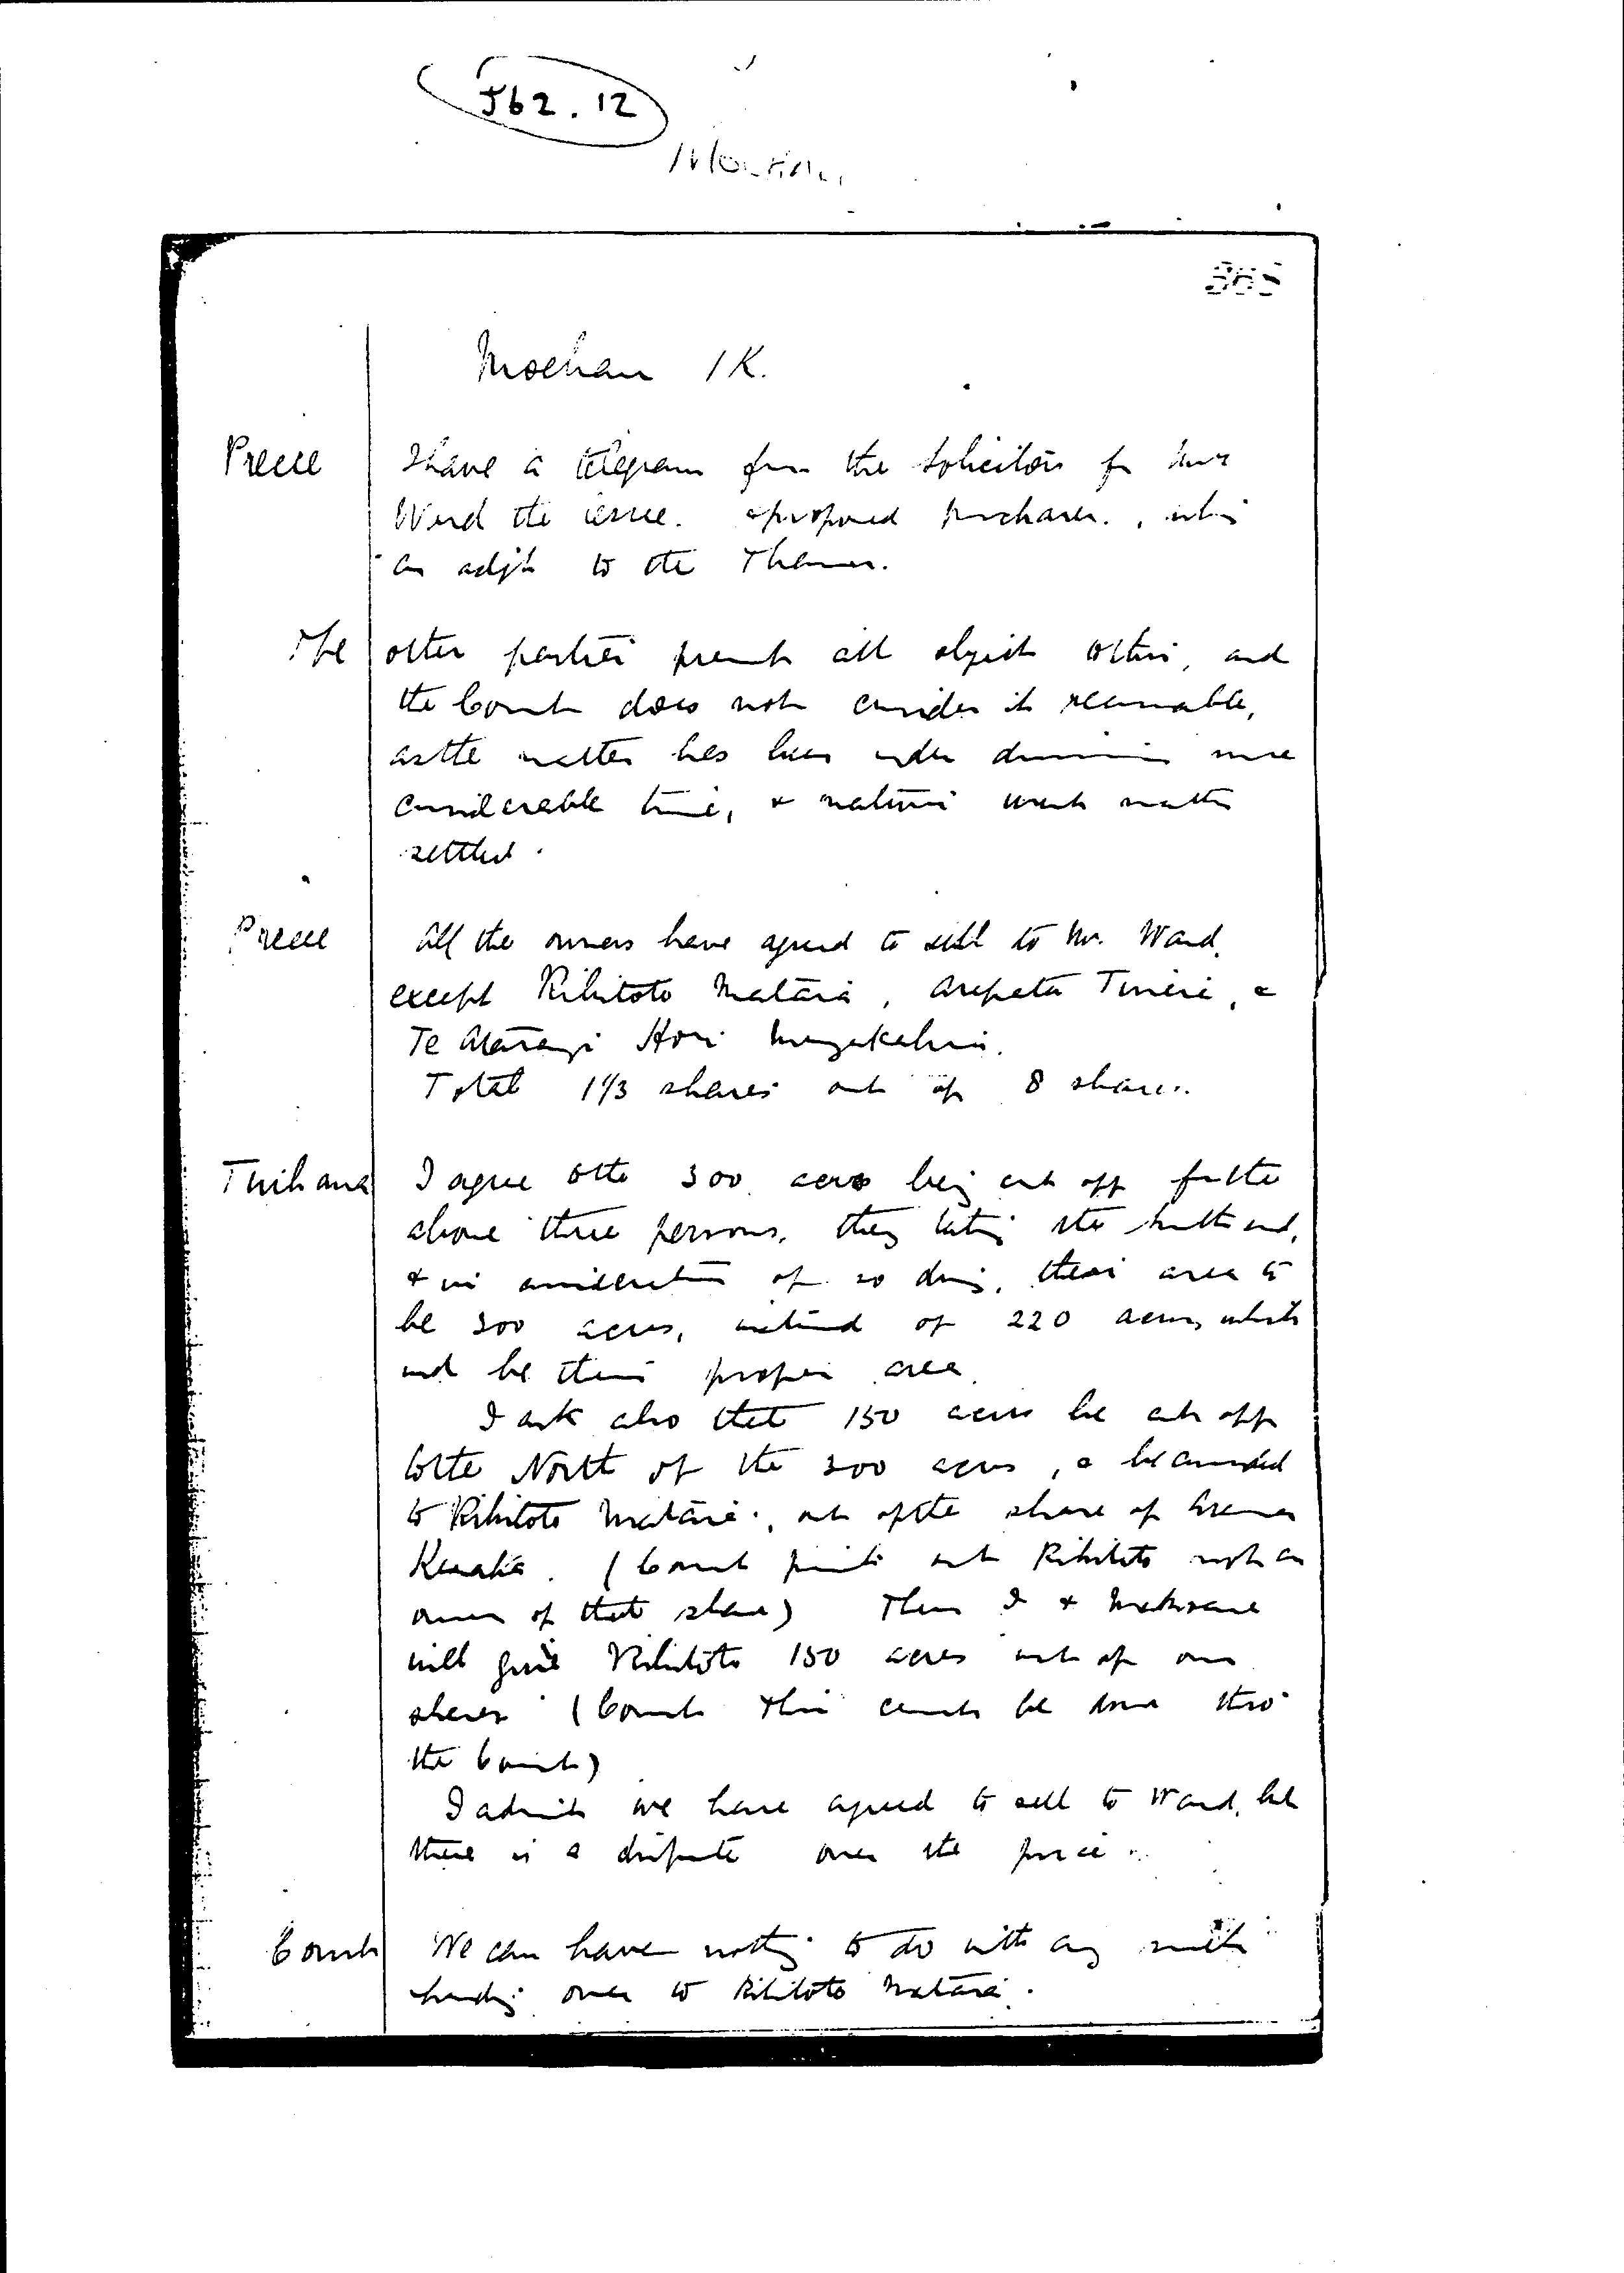 J62.12
Moehau
365
Moehau 1K.
Preece I have a telegram from the Solicitors for Mr
Ward the lessee. & proposed purchaser., asking
an adjt to the Thames.
The other parties present all object to this, and
the Court does not consider it reasonable,
as the matter has been under discussion some
considerable time, & natives want matter
settled.
Preece All the owners have agreed to sell to Mr. Ward,
except Rihitoto Mataia, Arepata Tiniri, &
Te Hori
Total 1 1/3 shares out of 8 shares.
Tuihana I agree to the 300 acres being cut off for the
above three persons, they taking the south end,
& in consideration of so doing, their area to
be 300 acres, instead of 220 acres, which
wd be their proper area.
I ask also that 150 acres be cut off
to the North of the 300 acres, & be awarded
to Rihitoto Mataia, out of the share of
(Court points out Rihitoto not an
owner of that share) Then I &
will give Rihitoto 150 acres out of our
shares (Court This cannot be done thro'
the Court)
I admit we have agreed to sell to Ward, but
there is a dispute over the price.
Court We can have nothing to do with any such
handing over to Rihitoto Mataia.